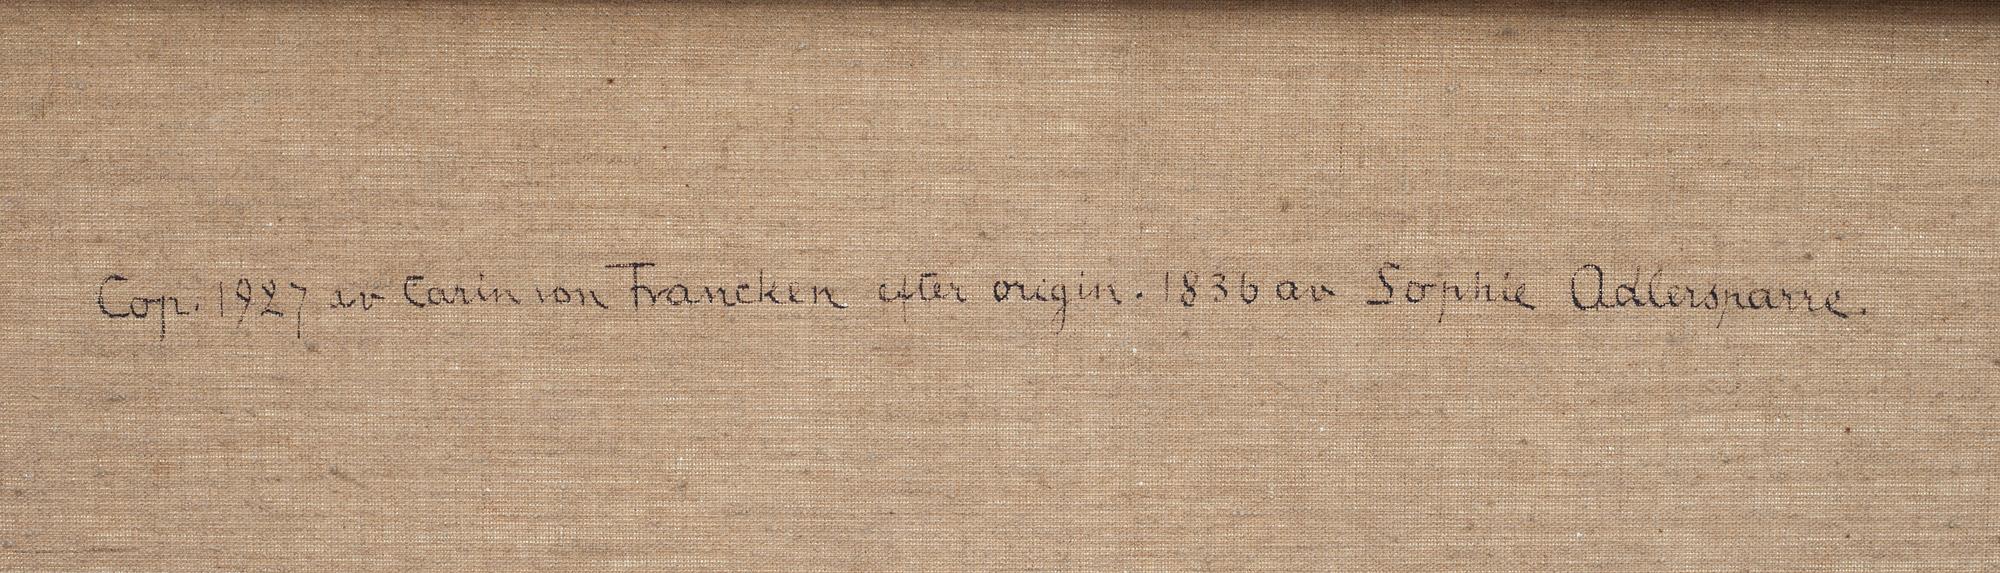 Cop. 1927 av Carin von Francken efter origin. 1836 av Sophie Adlersparre.